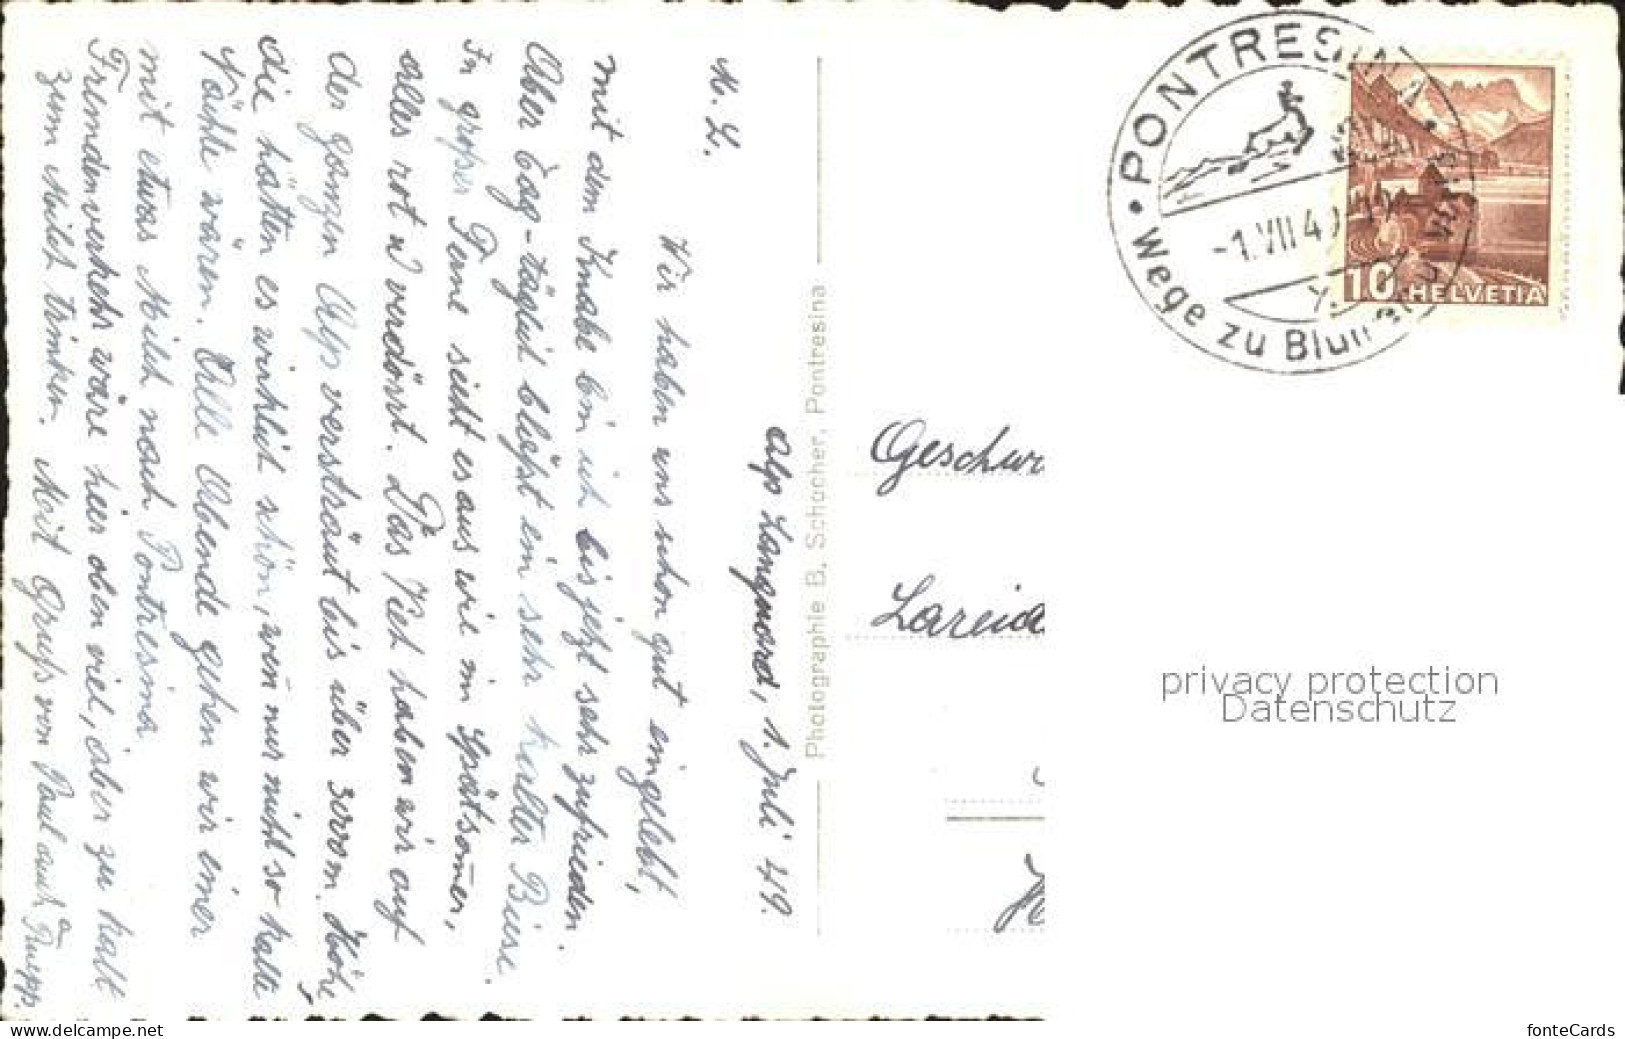 Alp Languard, 1. Juli 49.
M. L.
Wir haben uns schon gut eingelebt,
mit dem Knabe bin ich bis jetzt sehr zufrieden.
Aber Tag-täglich bließt ein sehr kalter Biese.
In großer Ferne sieht es aus wie im Spätsom̄er,
alles rot u verdörrt. Das Vieh haben wir auf
der ganzen Alp versträut bis über 3000 m. Höhe,
die hätten es wirklich schön, wen̄ nur nicht so kalte
Nächte wären. Alle Abende gehen wir einer
mit etwas Milch nach Pontresina
Fremdenverkehr wäre hier oben viel, aber zu kalt
zum Milch trinken. Mit Gruß von Paul auch a
Photographie B. Schocher, Pontresina
PONTRESINA
-1.VII 4
Wege zu Blum
10 HELVETIA
Geschw
Lareid
privacy protection
Datenschutz
www.delcampe.net
fonteCards